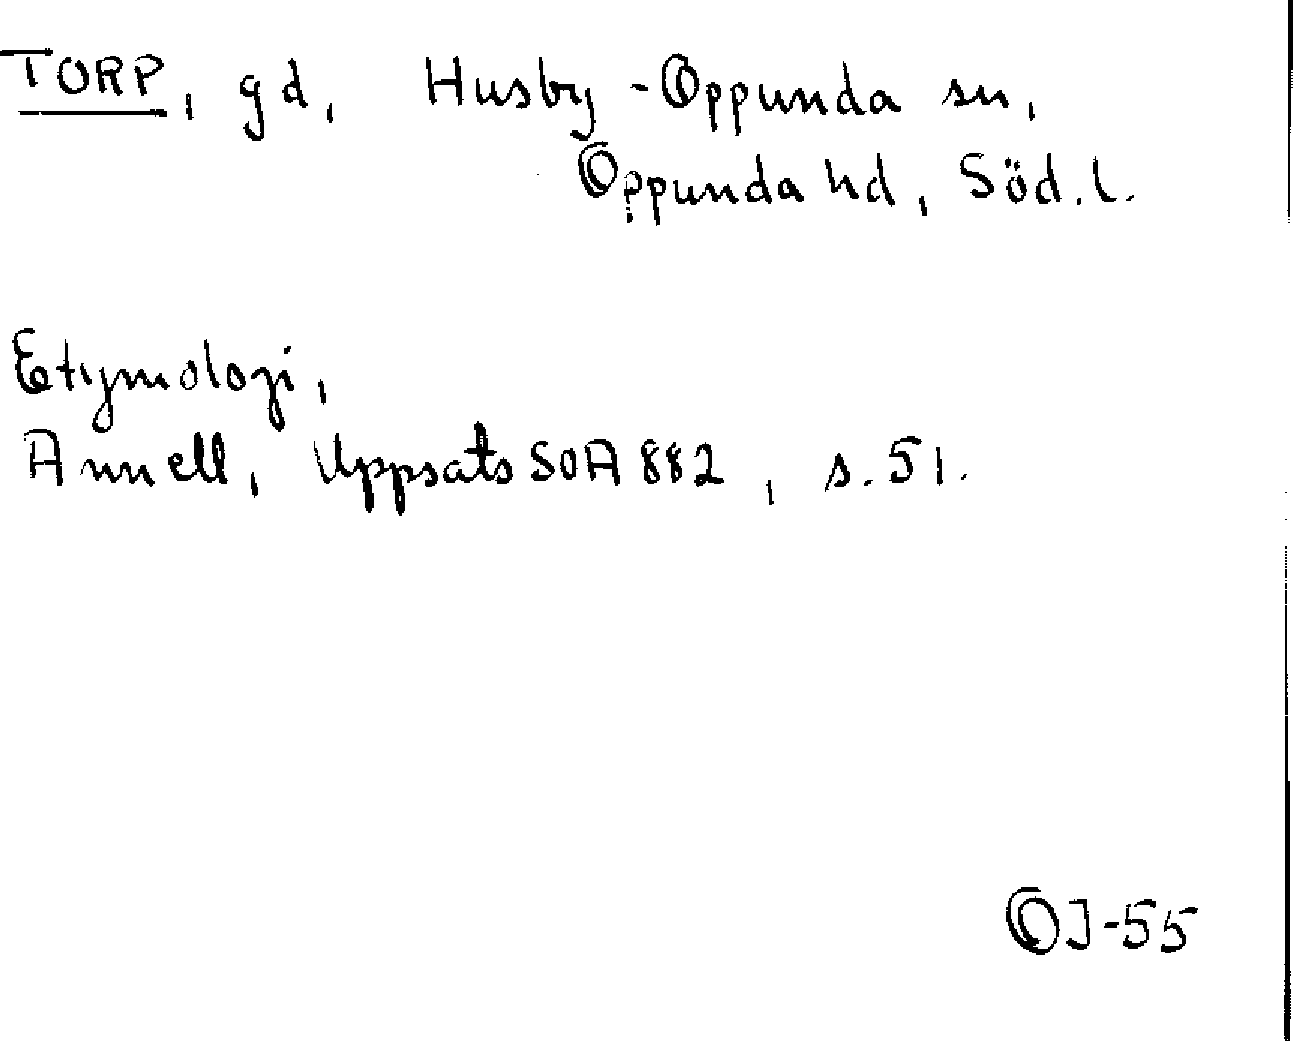 TORP, gd, Husby-Oppunda sn,
Oppunda hd, Söd. l.
Etymologi,
Annell, Uppsats SOA 882, s. 51.
OJ-55